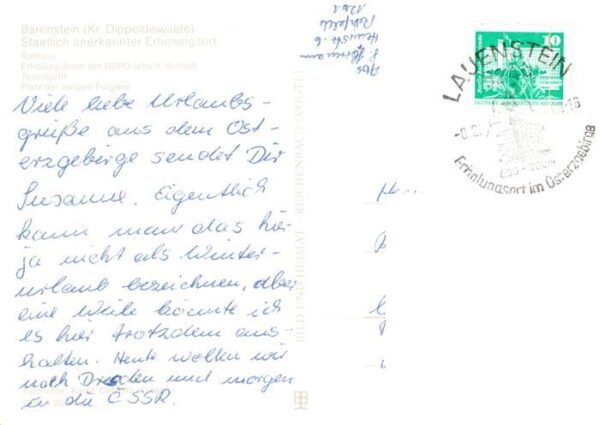 Bärenstein (Kr. Dippoldiswalde)
Staatlich anerkannter Erholungsort
Rathaus
Erholungsheim der NDPD (ehem. Schloß)
Teilansicht
Platz der Jungen Pioniere
Viele liebe Urlaubs-
grüße aus dem Ost-
erzgebirge sendet Dir
Susanne. Eigentlich
kann man das hier
ja nicht als Winter-
urlaub bezeichnen, aber
eine Weile könnte ich
es hier trotzdem aus-
halten. Heute wollen wir
nach Dresden und morgen
in die ČSSR.
BILD UND HEIMAT · REICHENBACH (VOGTL)
Abs
1261
10
LAUENSTEIN
Erholungsort im Osterzgebirge